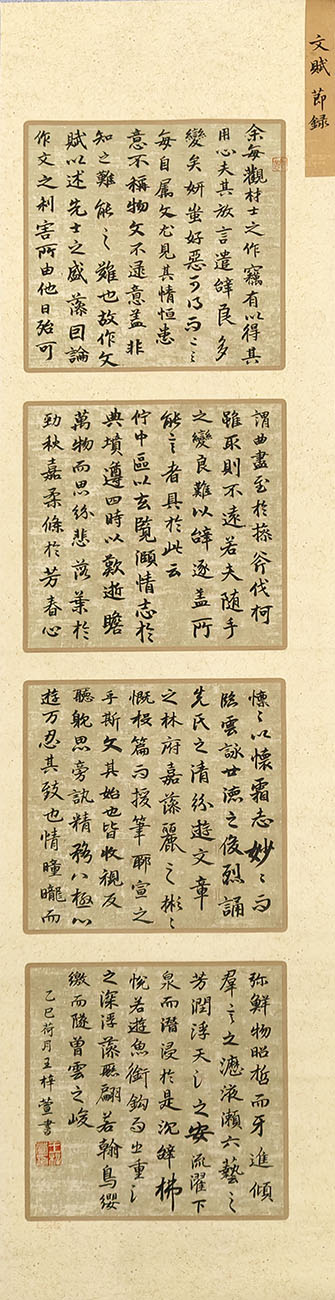 文賦 節録
余每觀材士之作竊有以得其
用心夫其放言遣辭良多
變矣妍蚩好惡可得而言
每自属文尤見其情恒患
意不稱物文不逮意盖非
知之難能之難也故作文
賦以述先士之盛藻因論
作文之利害所由他日殆可
謂曲盡至於操斧伐柯
雖取則不遠若夫隨手
之變良難以辭逐盖所
能言者具於此云
佇中區以玄覧頤情志於
典墳遵四時以歎逝瞻
萬物而思紛悲落葉於
勁秋嘉柔條於芳春心
懍〻以懷霜志妙〻而
臨雲詠世德之俊烈誦
先民之清芬遊文章
之林府嘉藻麗之彬〻
慨投篇而援筆聊宣之
乎斯文其始也皆收視反
聽耽思旁訊精務八極心
遊万忍其致也情曈曨而
弥鮮物昭晢而互進傾
羣言之瀝液漱六藝之
芳潤浮天淵之安流濯下
泉而潛浸於是沉辭怫
悅若遊魚銜鈎而出重淵
之深浮藻聯翩若翰鳥纓
繳而墜曾雲之峻
乙巳荷月王梓萱書